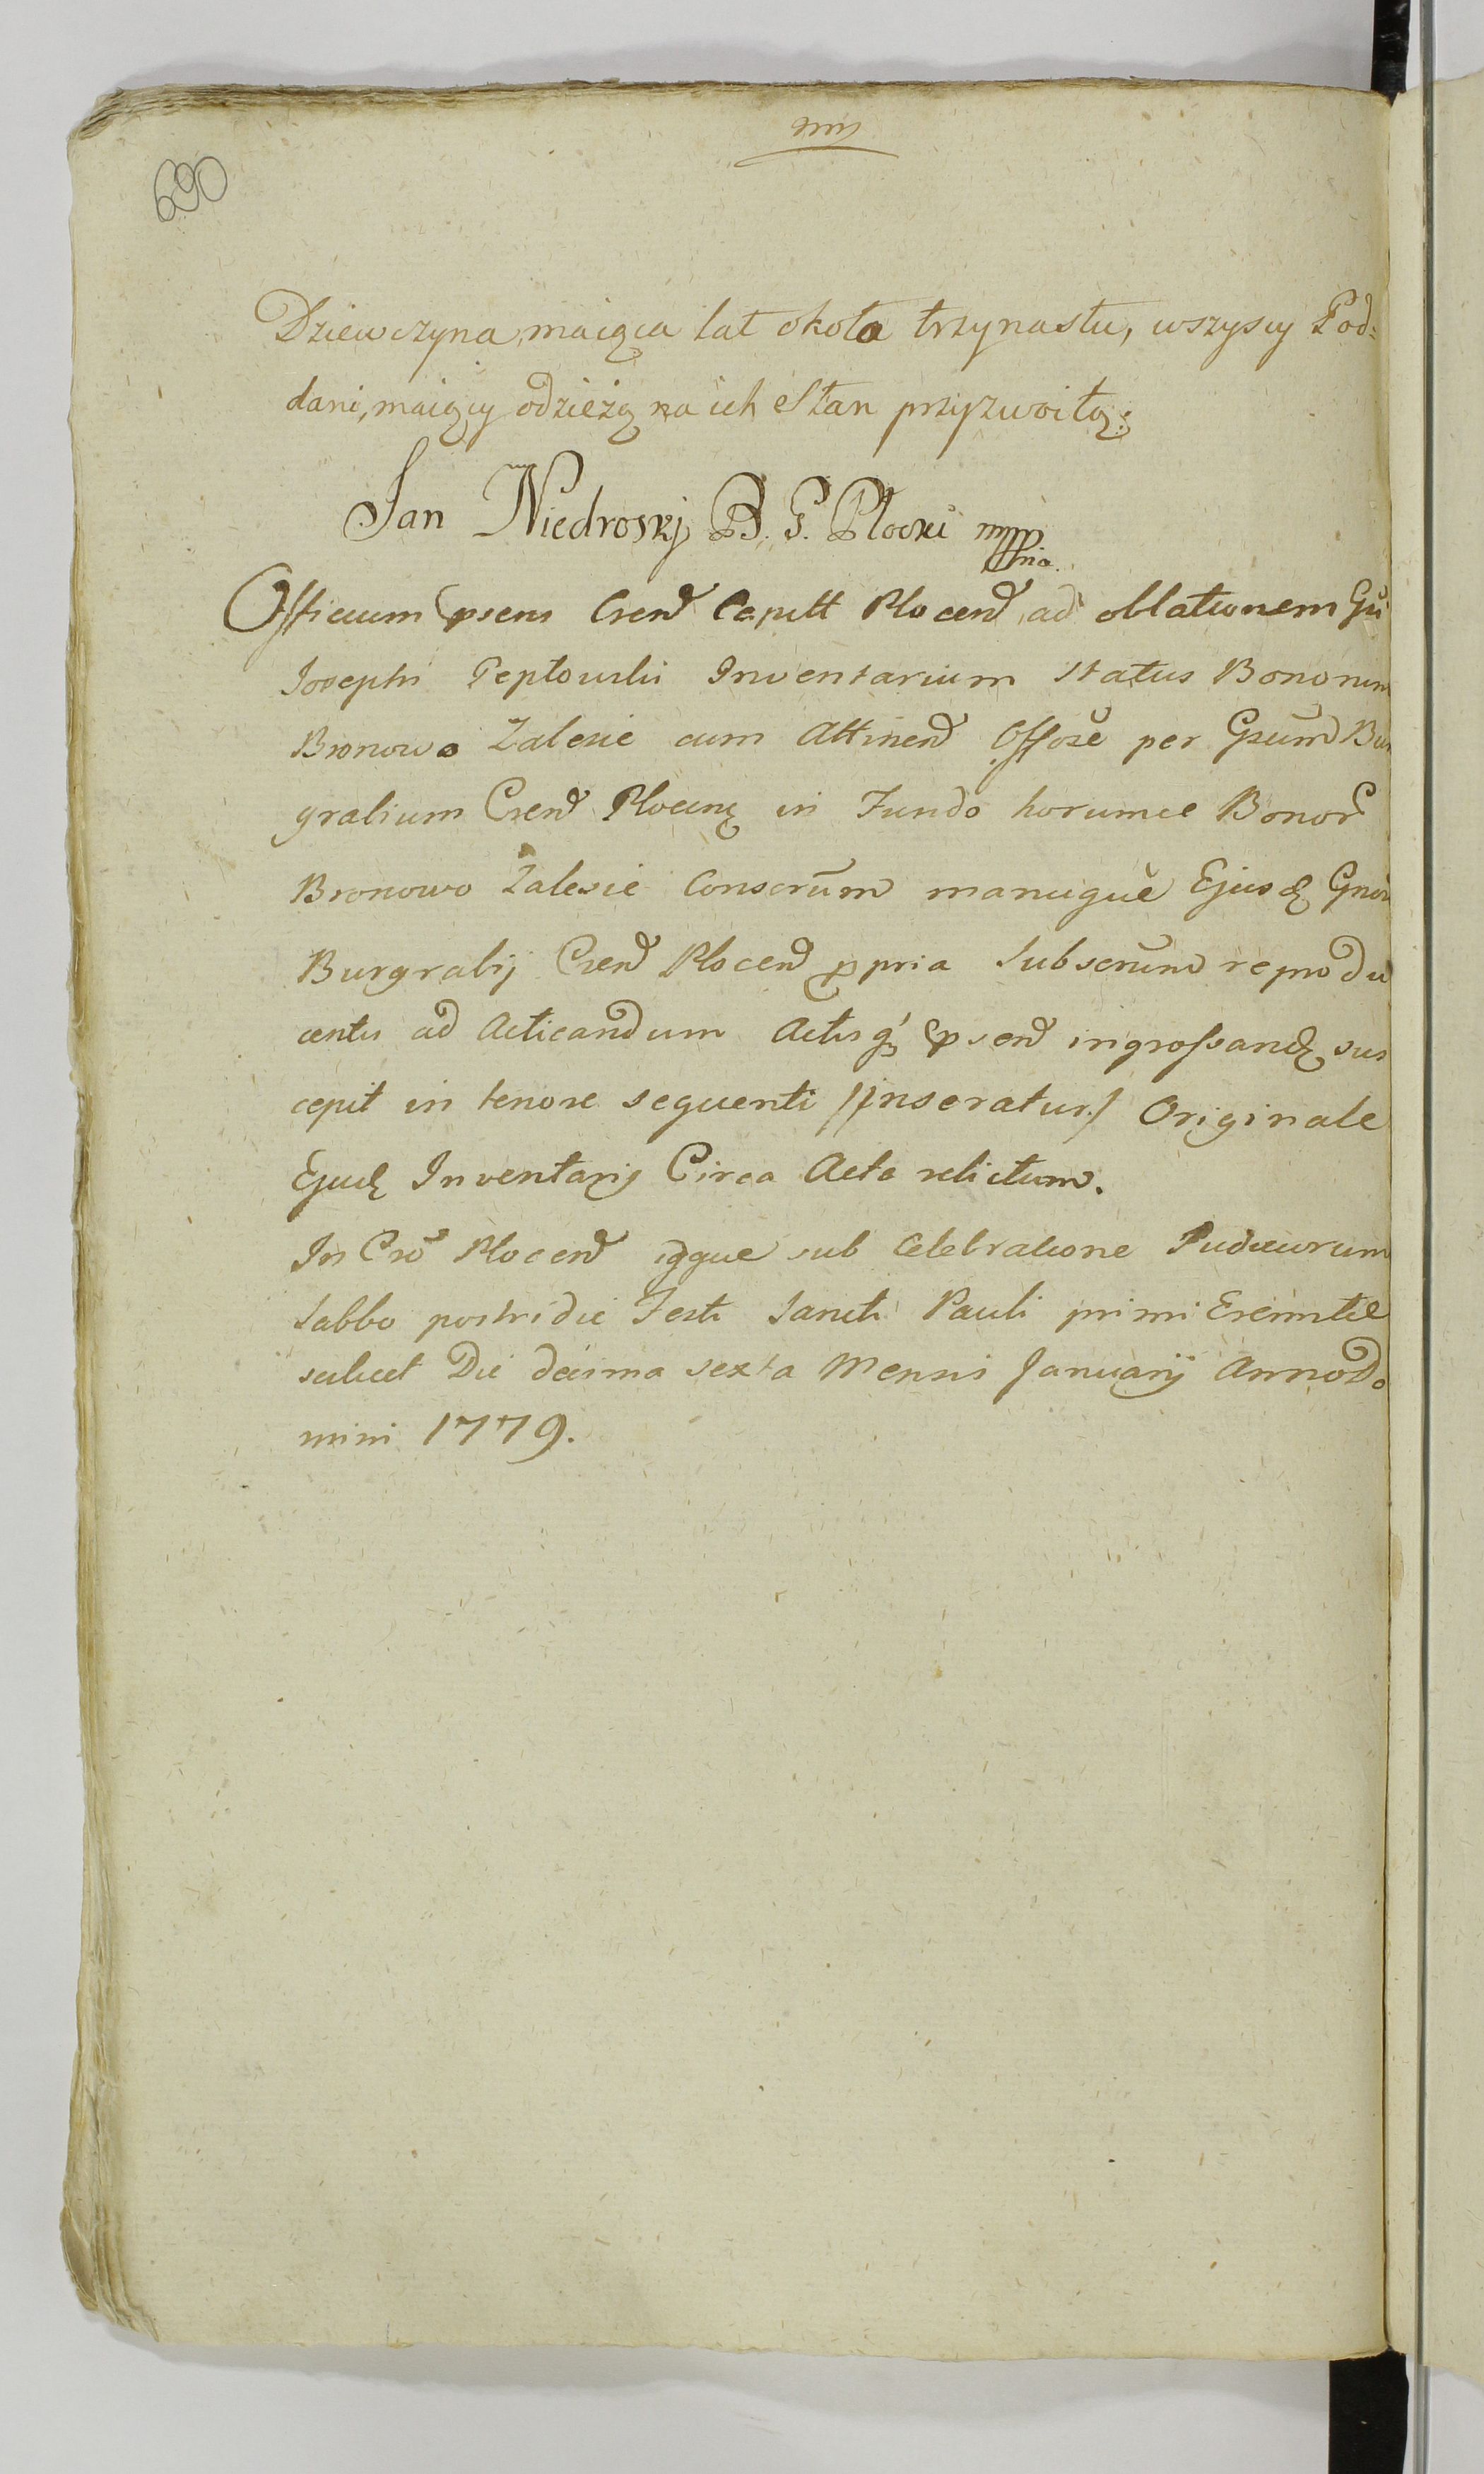 690
Dziewczyna, maiąca lat okoła trzynastu, wszyscy Pod:
dani, maiący odzieżą na ich Stan przyzwoitą:
Jan Niedroskj B. G. Plocki mppria.
Officium psens Cren̄ Capitt Plocen̄ ad oblationem Gñi
Josephi Peptowski Inventarium status Bonorum
Bronowo Zalesie cum Attinen̄ Offose per Gsum Bur
grabium Cren̄ Plocen̄ in Fundo horumce Bonor̄
Bronowo Zalesie Conscrūm manuque Ejusd Gnōr
Burgrabij Cren̄ Plocen̄ ppria Subscrūm reprodu
centis ad Acticandum Actisq́ psen̄ ingrossand sus
cepit in tenore sequenti /:inseratur:/ Originale
Ejusd Inventarij Circa Acta relictum.
In Crō Plocen̄ que sub Celebratione Judiciorum
Sabbo postridie Festi Sancti Pauli primi Eremitæ
scilicet Die decima sexta Mensis Januarij Anno Do
mini 1779.